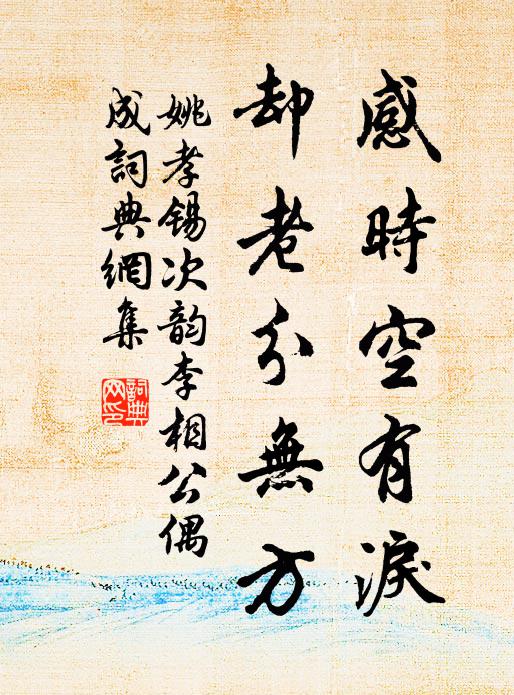 感時空有淚
却老分無方
姚孝錫次韵李相公偶
成詞典網集
詞典
网印